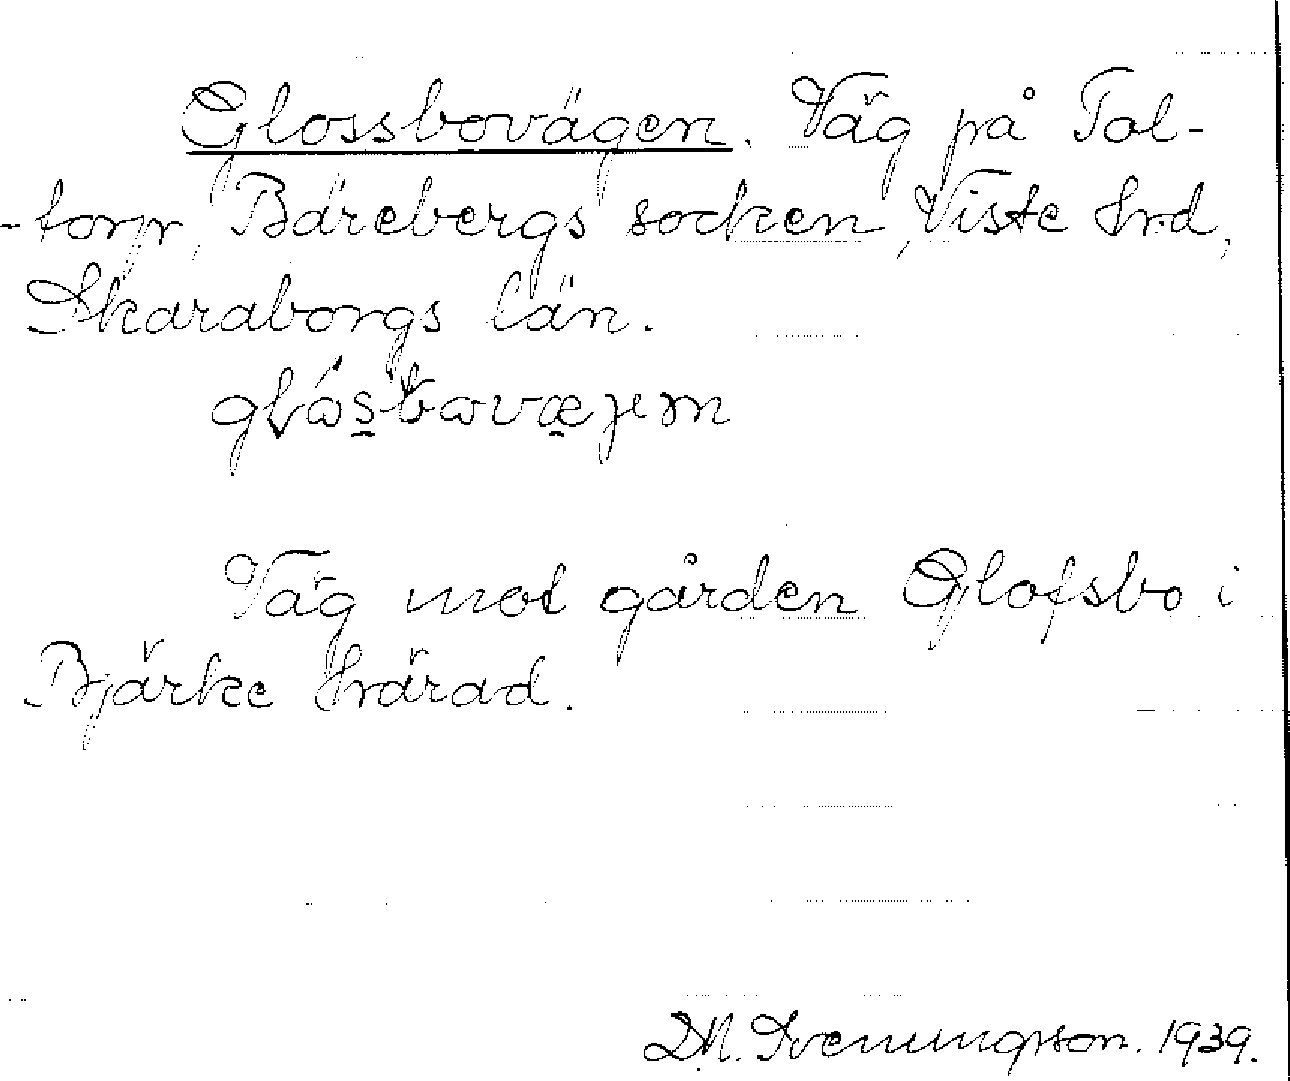 Glossbovägen. Väg på Tol-
-torp, Bärebergs socken, Viste hrd,
Skaraborgs län.
glɷ́sbɷvæjɘm
Väg mot gården Glofsbo i
Bjärke härad.
D.M. Sveningsson. 1939.